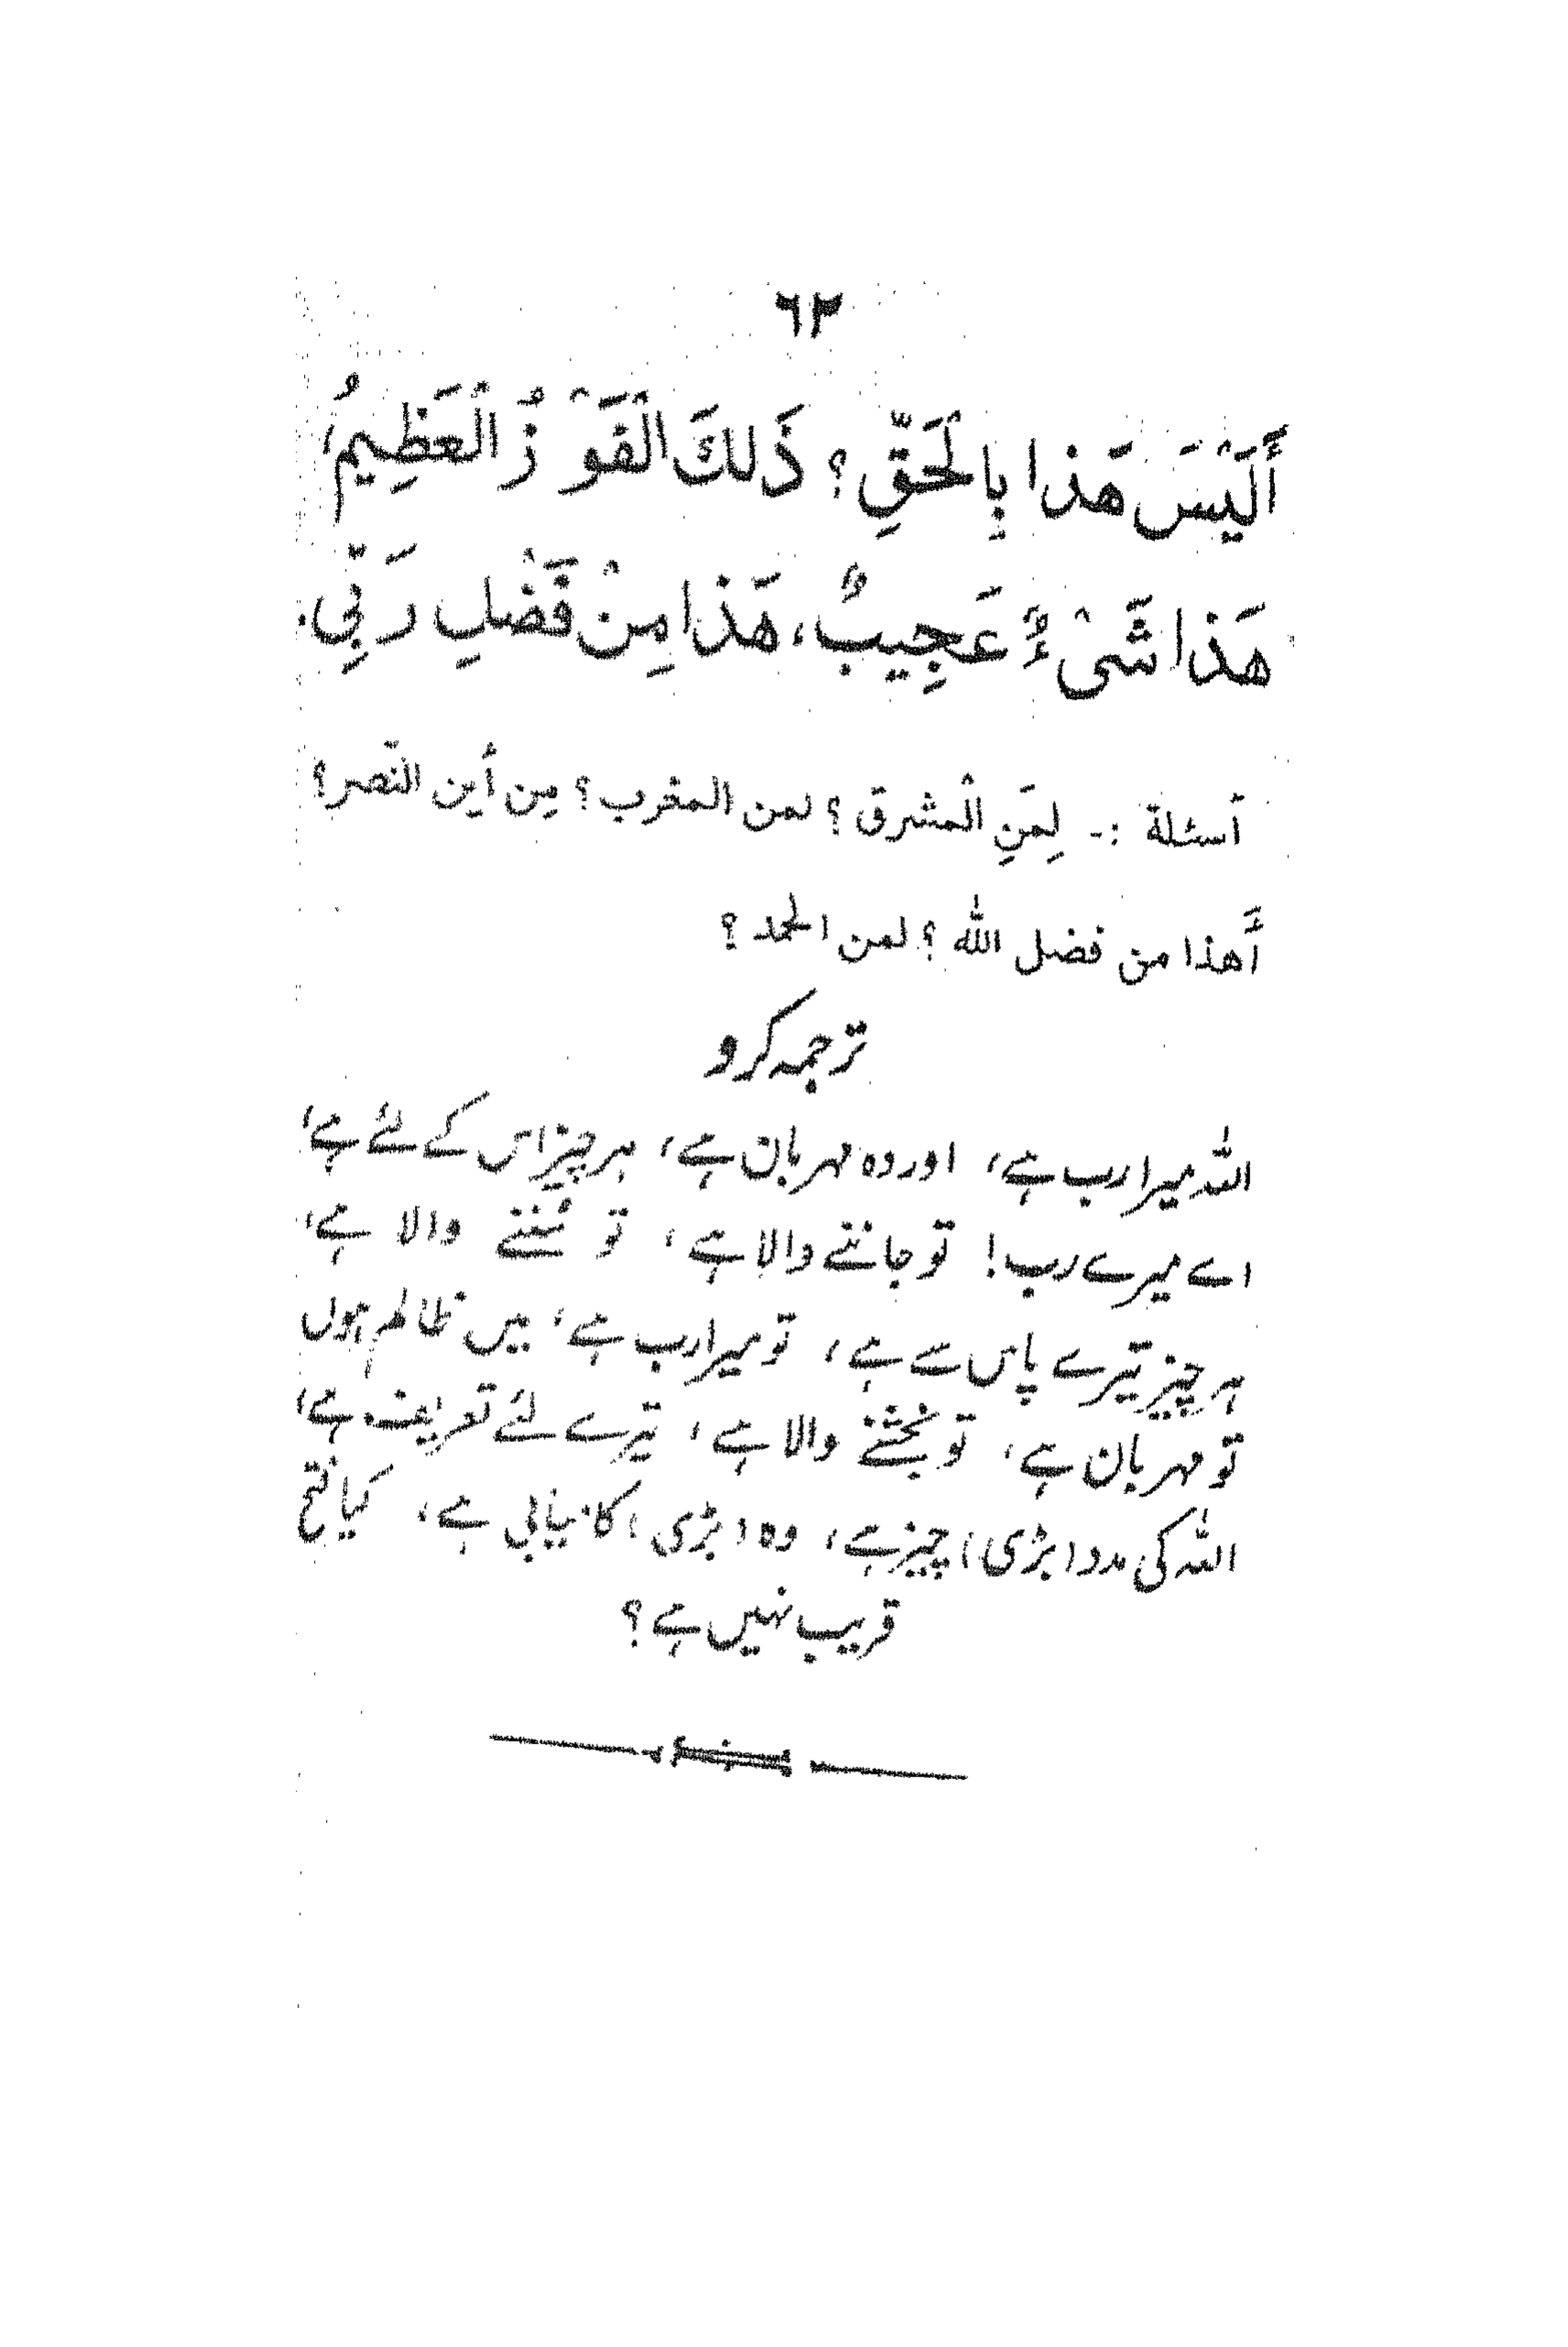 ٦٣
أَلَيْسَ هَذا بِالْحَقِّ؟ ذَلكَ الْفَوْزُ الْعَظِيمُ،
هَذا شَىْءٌ عَجِيبٌ، هَذا مِنْ فَضْلِ رَبِّي.
أسئلة :- لِمَنِ الْمشرق؟ لمن المغرب؟ مِن أَين النّصر؟
أَهذا من فضل الله؟ لمن الحمد؟
ترجمہ کرو
اللہ میرا رب ہے، اور وہ مہربان ہے، ہر چیز اس کے لئے ہے،
اے میرے رب! تو جاننے والا ہے، تو سُننے والا ہے،
ہر چیز تیرے پاس سے ہے، تو میرا رب ہے، میں ظالم ہوں
تو مہربان ہے، تو بخشنے والا ہے، تیرے لئے تعریف ہے،
اللہ کی مدد (بڑی) چیز ہے، وہ (بڑی) کامیابی ہے، کیا فتح
قریب نہیں ہے؟